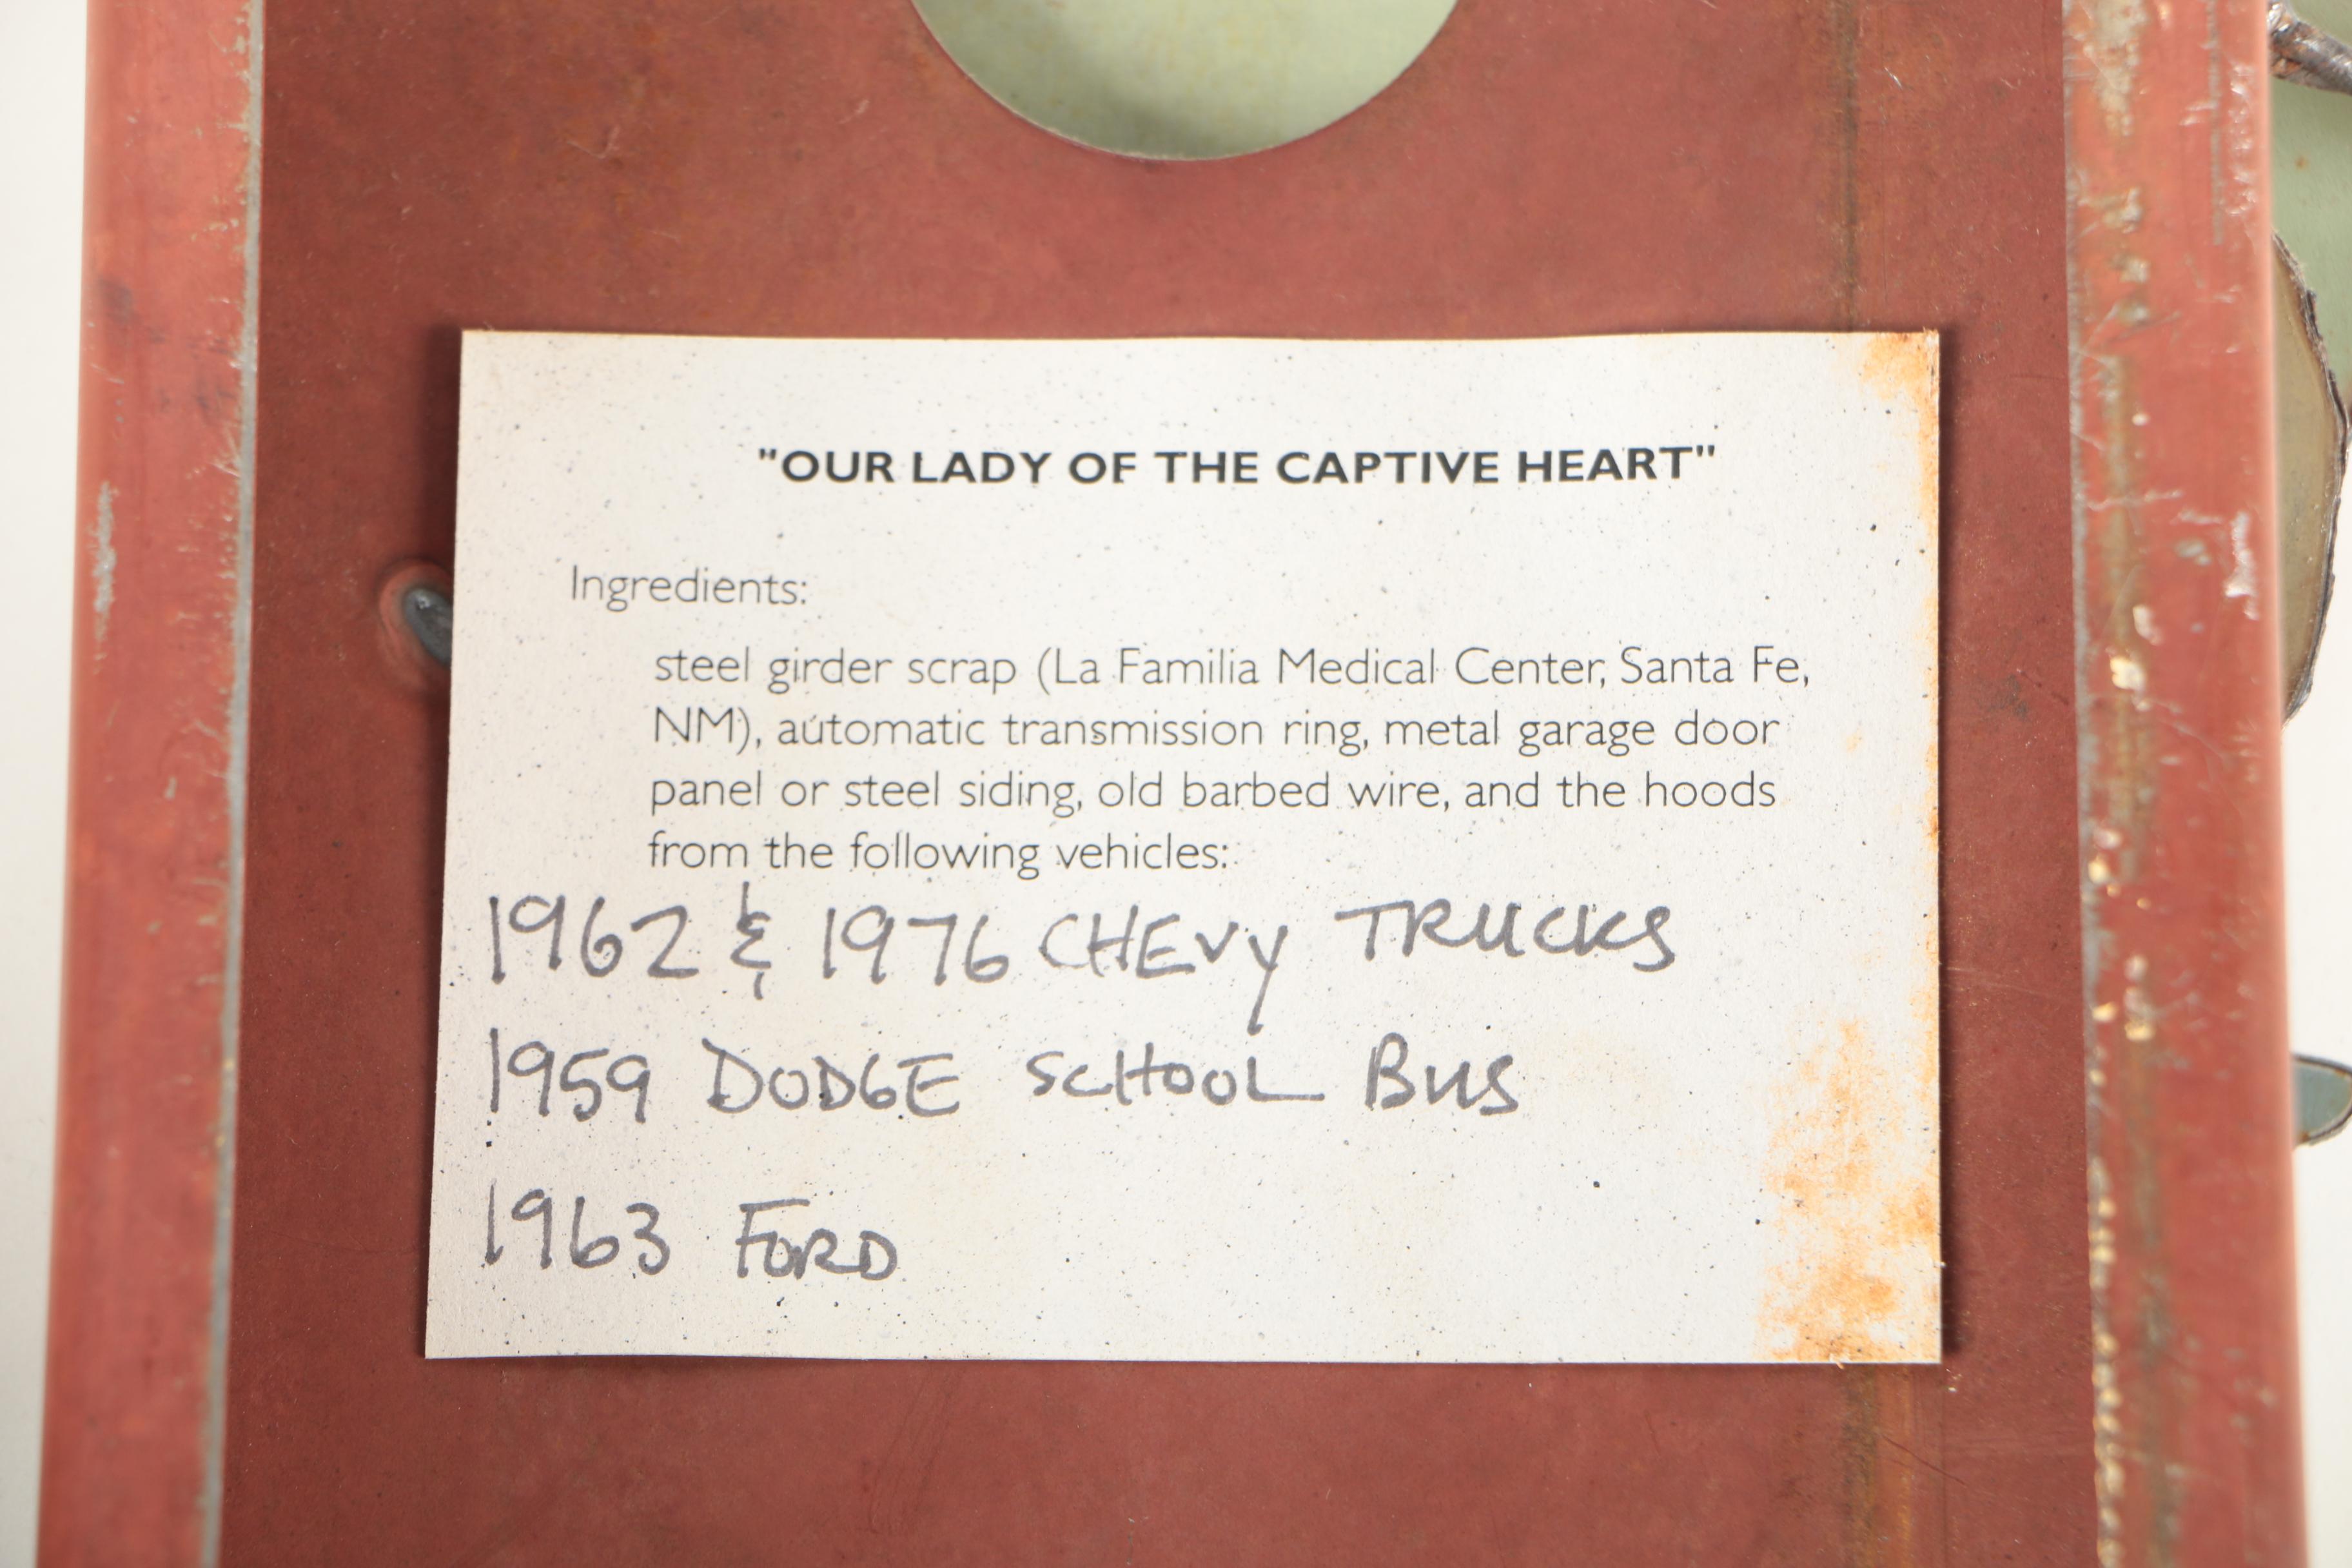 "OUR LADY OF THE CAPTIVE HEART"
Ingredients:
steel girder scrap (La Familia Medical Center, Santa Fe,
NM), automatic transmission ring, metal garage door
panel or steel siding, old barbed wire, and the hoods
from the following vehicles:
1962 & 1976 CHEVY TRUCKS
1959 DODGE SCHOOL BUS
1963 FORD